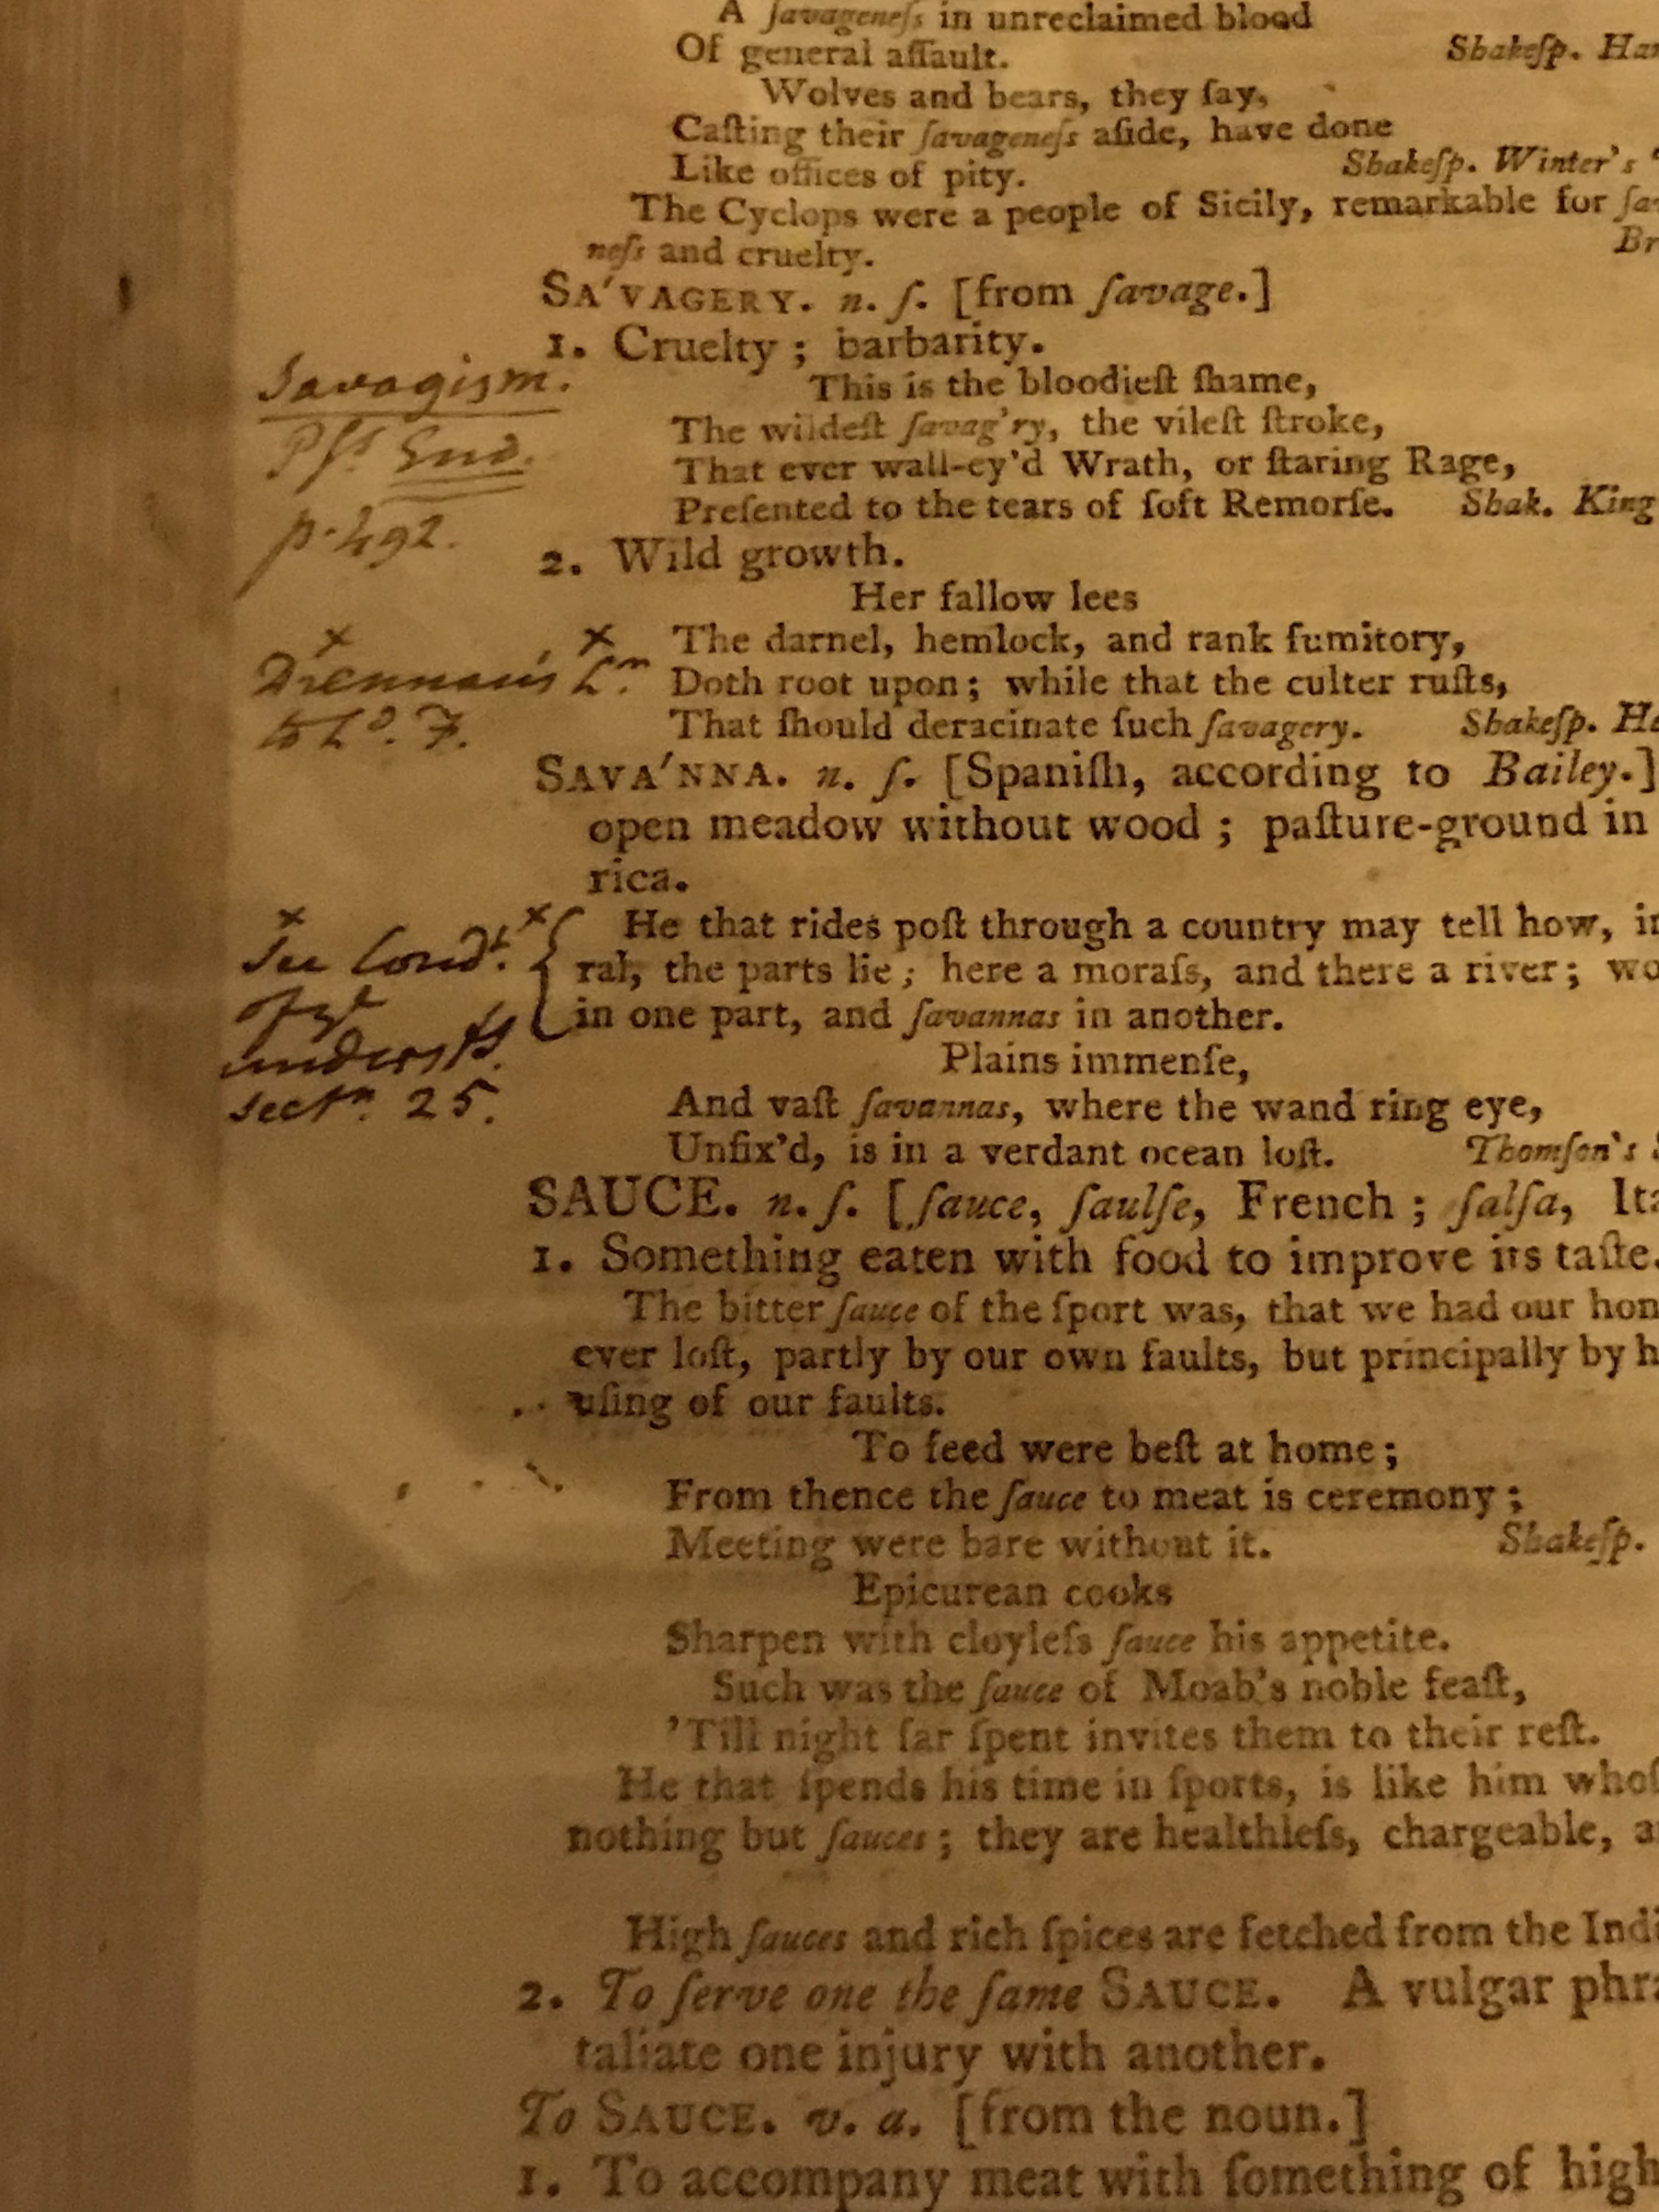 A ſavageneſs in unreclaimed blood
Of general aſſault. Shakeſp. Ham
Wolves and bears, they ſay,
Caſting their ſavageneſs aſide, have done
Like offices of pity. Shakeſp. Winter's
The Cyclops were a people of Sicily, remarkable for ſa
neſs and cruelty. Br
SA'VAGERY. n. ſ. [from ſavage.]
1. Cruelty; barbarity.
Savagism.
This is the bloodieſt ſhame,
The wildeſt ſavag'ry, the vileſt ſtroke,
That ever wall-ey'd Wrath, or ſtaring Rage,
Preſented to the tears of ſoft Remorſe. Shak. King
p. 492.
2. Wild growth.
Her fallow lees
The darnel, hemlock, and rank fumitory,
Drennan's Lr. Doth root upon; while that the culter ruſts,
That ſhould deracinate ſuch ſavagery. Shakeſp. He
SAVA'NNA. n. ſ. [Spaniſh, according to Bailey.]
open meadow without wood; paſture-ground in
rica.
He that rides poſt through a country may tell how, in
See Condt. ral, the parts lie; here a moraſs, and there a river; wo
of ye in one part, and ſavannas in another.
underst̄g.
Plains immenſe,
sectn. 25. And vaſt ſavannas, where the wand ring eye,
Unfix'd, is in a verdant ocean loſt. Thomſon's S
SAUCE. n. ſ. [ſauce, ſaulſe, French; ſalſa, Ita
1. Something eaten with food to improve its taſte.
The bitter ſauce of the ſport was, that we had our hon
ever loſt, partly by our own faults, but principally by h
uſing of our faults.
To feed were beſt at home;
From thence the ſauce to meat is ceremony;
Meeting were bare without it. Shakeſp.
Epicurean cooks
Sharpen with cloyleſs ſauce his appetite.
Such was the ſauce of Moab's noble feaſt,
'Till night far ſpent invites them to their reſt.
He that ſpends his time in ſports, is like him whoſ
nothing but ſauces; they are healthleſs, chargeable, a
High ſauces and rich ſpices are fetched from the Indi
2. To ſerve one the ſame SAUCE. A vulgar phra
taliate one injury with another.
To SAUCE. v. a. [from the noun.]
1. To accompany meat with ſomething of high